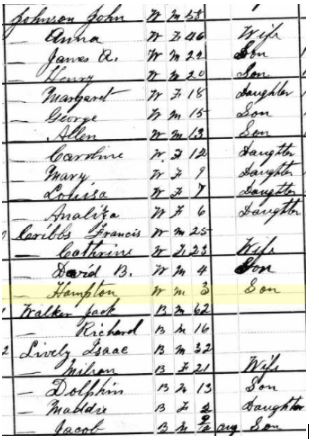 Johnson John W M 58
— Anna W F 46 Wife
— James A. W M 22 Son
— Henry W M 20 Son
— Margaret W F 18 Daughter
— George W M 15 Son
— Allen W M 13 Son
— Caroline W F 12 Daughter
— Mary W F 9 Daughter
— Louisa W F 7 Daughter
— Analiza W F 6 Daughter
Cribbs Francis W M 25
— Cathrine W F 23 Wife
— David B. W M 4 Son
— Hampton W M 3 Son
Walker Jack B M 62
— Richard B M 16
2 Lively Isaac B M 32
— B F 21 Wife
— Dolphin B M 13 Son
— Maddie B F Daughter
— Jacob B M Aug Son